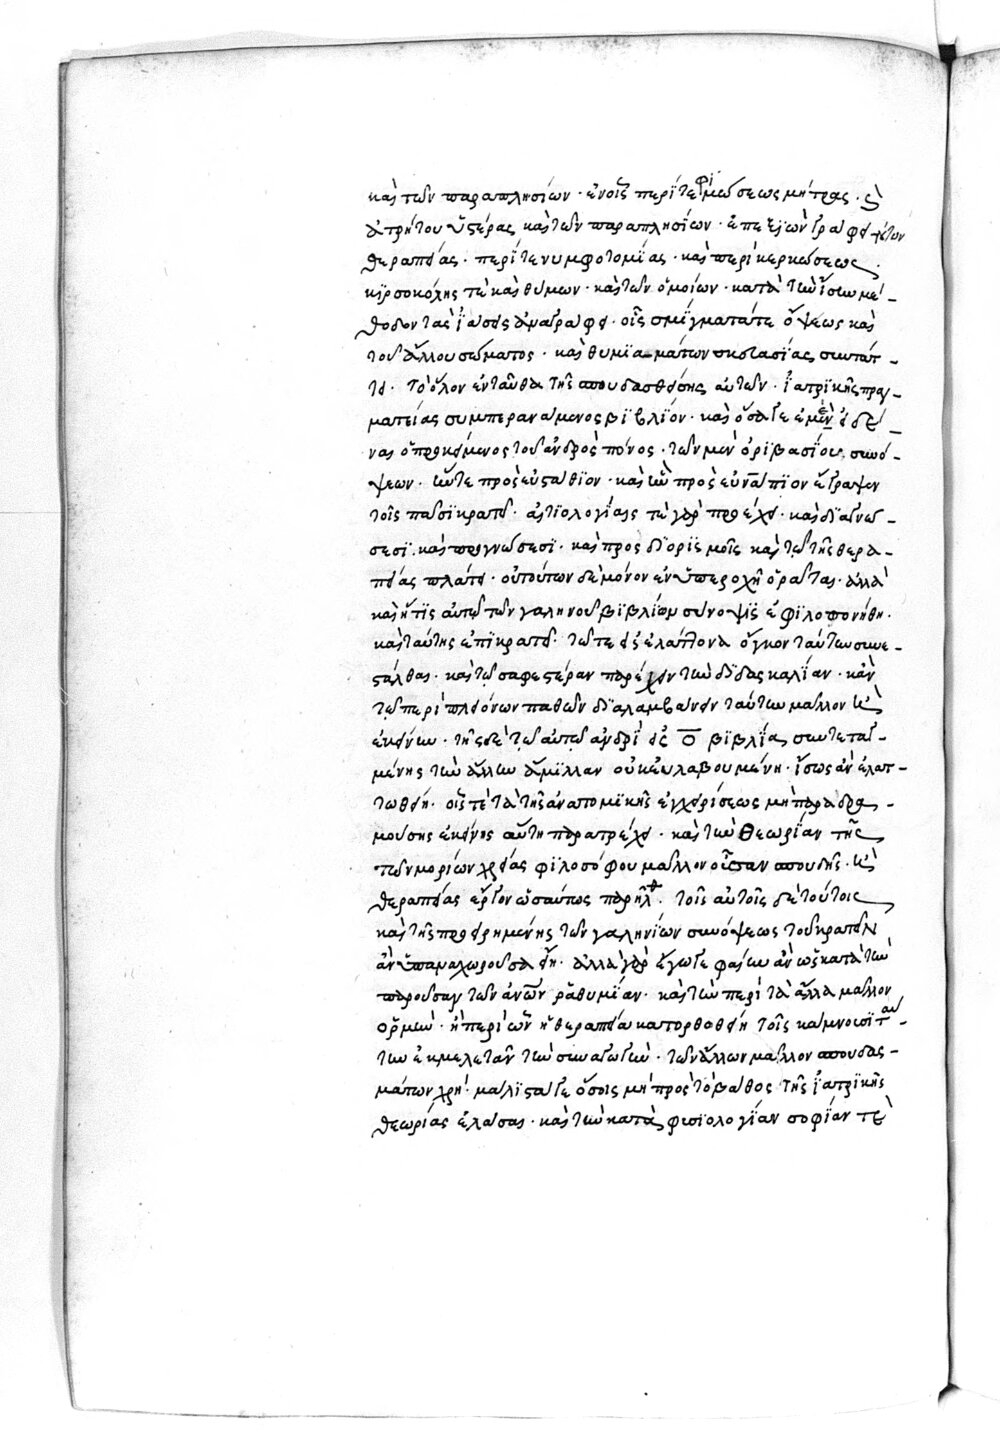 καὶ τῶν παραπλησίων · ἐν οἷς περί τε φιμώσεως μήτρας · καὶ
ἀτρήτου ὑστέρας καὶ τῶν παραπλησίων · ἐπεξιὼν γράφει τὲ τῶν
θεραπείας · περί τε νυμφοτομίας · καὶ περὶ κερκώσεως
κιρσοκήλης τὲ καὶ θύμων · καὶ τῶν ὁμοίων · κατὰ τὴν ἴσην μέ-
θοδον τὰς ἰάσεις ἀναγράφει · οἷς σμίγματά τε ὄψεως καὶ
τοῦ ἄλλου σώματος · καὶ θυμιαμάτων σκευασίας συντάτ-
τει · τὸ ὅλον ἐνταῦθα τῆς σπουδασθείσης αὐτῶν · ἰατρικῆς πραγ-
ματείας συμπεραινάμενος βιβλίον · καὶ ὅσα γε ἐμὲ
νας ὁ προκείμενος τοῦ ἀνδρὸς πόνος · τῶν μὲν ὀριβασίου συνό-
ψεων · ἥν τε πρὸς εὐστάθιον · καὶ ἣν πρὸς εὐνάπιον ἔγραψεν
τοῖς πᾶσι κρατεῖ · αἰτιολογίαις τὲ γὰρ προέχει · καὶ διαγνώ-
σεσι καὶ προγνώσεσι · καὶ πρὸς διορισμοῖς καὶ τῷ τῆς θερα-
πείας πλάτει · οὐ τούτων δὲ μόνον ἐν ὑπεροχῇ ὁρᾶται · ἀλλὰ
καὶ ἥτις αὐτῷ τῶν γαληνοῦ βιβλίων σύνοψις ἐφιλοπονήθη ·
καὶ ταύτης ἐπικρατεῖ · τῷ τε εἰς ἐλάττονα ὄγκον ταύτην συνε-
στάλθαι · καὶ τῷ σαφεστέραν παρέχειν τὴν διδασκαλίαν · κἂν
τῷ περὶ πλειόνων παθῶν διαλαμβάνειν ταύτην μᾶλλον ἢ
ἐκείνην · τῆς δὲ τῷ αὐτῷ ἀνδρὶ εἰς ο βιβλία συντεταγ-
μένης τὴν ἄλλην ἅμιλλαν οὐκ εὐλαβουμένη · ἴσως ἂν ἐλατ-
τωθείη · οἷς τε τὰ τῆς ἀνατομικῆς ἐγχειρίσεως μὴ παραδρα-
μούσης ἐκείνης αὕτη παρατρέχει · καὶ τὴν θεωρίαν τῆς
τῶν μορίων χρείας φιλοσόφου μᾶλλον οὖσαν σπουδῆς · ἢ
θεραπείας ἔργον ὡσαύτως παρῆλθε · τοῖς αὐτοῖς δὲ τούτοις
καὶ τῆς προειρημένης τῶν γαληνίων συνόψεως τοῦ κρατεῖν
ἂν ὑπαναχωροῦσα εἴη · ἀλλὰ γὰρ ἔγωγε φαίην ἂν ὡς κατὰ τὴν
παροῦσαν τῶν ἀνων ῥαθυμίαν · καὶ τὴν περὶ τὰ ἄλλα μᾶλλον
ὁρμήν · ἢ περὶ ὧν ἡ θεραπεία κατορθωθείη τοῖς κάμνουσι ταύ-
την ἐκμελετᾶν τὴν συναγωγήν · τῶν ἄλλων μᾶλλον σπουδασ-
μάτων χρή · μάλιστά γε ὅσοις μὴ πρὸς τὸ βάθος τῆς ἰατρικῆς
θεωρίας ἐλάσαι · καὶ τὴν κατὰ φυσιολογίαν σοφίαν τὲ